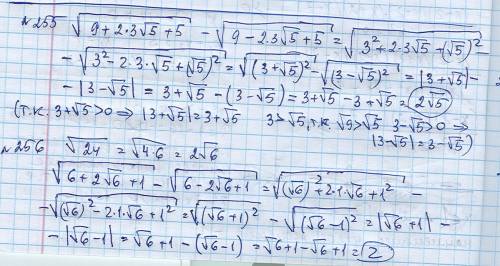 №255 √(9+2·3√5+5) - √(9-2·3√5+5) = √(3²+2·3√5+(√5)²) -
- √(3²-2·3·√5+(√5)²) = √((3+√5)²) - √((3-√5)²) = |3+√5| -
- |3-√5| = 3+√5 - (3-√5) = 3+√5-3+√5 = 2√5
(т.к. 3+√5>0 ⇒ |3+√5|=3+√5 3>√5, т.к. √9>√5 3-√5>0 ⇒
|3-√5|=3-√5)
№256 √24 = √4·6 = 2√6
√(6+2√6+1) - √(6-2√6+1) = √((√6)²+2·1·√6+1²) -
- √((√6)²-2·1·√6+1²) = √((√6+1)²) - √((√6-1)²) = |√6+1| -
- |√6-1| = √6+1 - (√6-1) = √6+1-√6+1 = 2